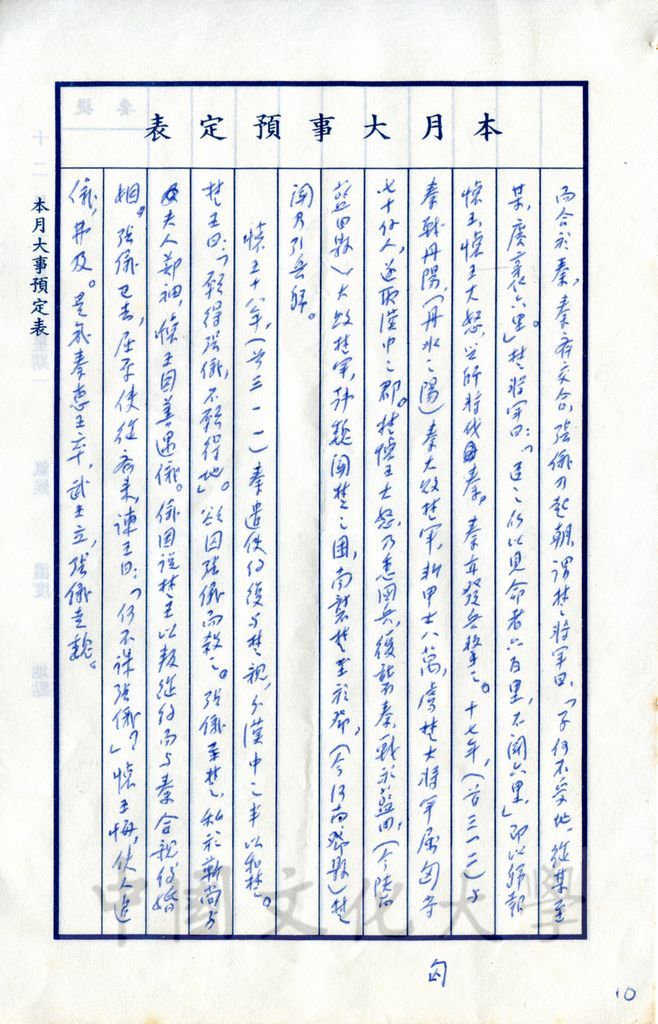 本月大事預定表
而合於秦，秦齊交合，張儀乃起朝，謂楚將軍曰：「子何不受地，從某至
某，廣袤六里」。楚將軍曰：「臣之所以見命者六百里，不聞六里」即以歸報
懷王，懷王大怒，興師將伐秦，秦亦發兵擊之。十七年，（前三一二）與
秦戰丹陽，（丹水之陽）秦大敗楚軍，斬甲士八萬，虜楚大將軍屈匄等
七十餘人，遂取漢中之郡。楚懷王大怒，乃悉國兵，復襲秦，戰於藍田，（今陝西
藍田縣）大敗楚軍，韓魏聞楚之困，南襲楚至於鄧，（今河南鄧縣）楚
聞乃引兵歸。
懷王十八年，（前三一一）秦遣使約復與楚親，分漢中之半以和楚。
楚王曰：「願得張儀，不願得地」。欲因張儀而殺之。張儀至楚，私於靳尚與
夫人鄭袖，懷王因善遇儀。儀因說楚王以叛從約而與秦合親，約婚
姻。張儀已去，屈平使從齊來，諫王曰：「何不誅張儀？」懷王悔，使人追
儀，弗及。是歲秦惠王卒，武王立，張儀走魏。
本月大事預定表
匄
10
中國文化大學